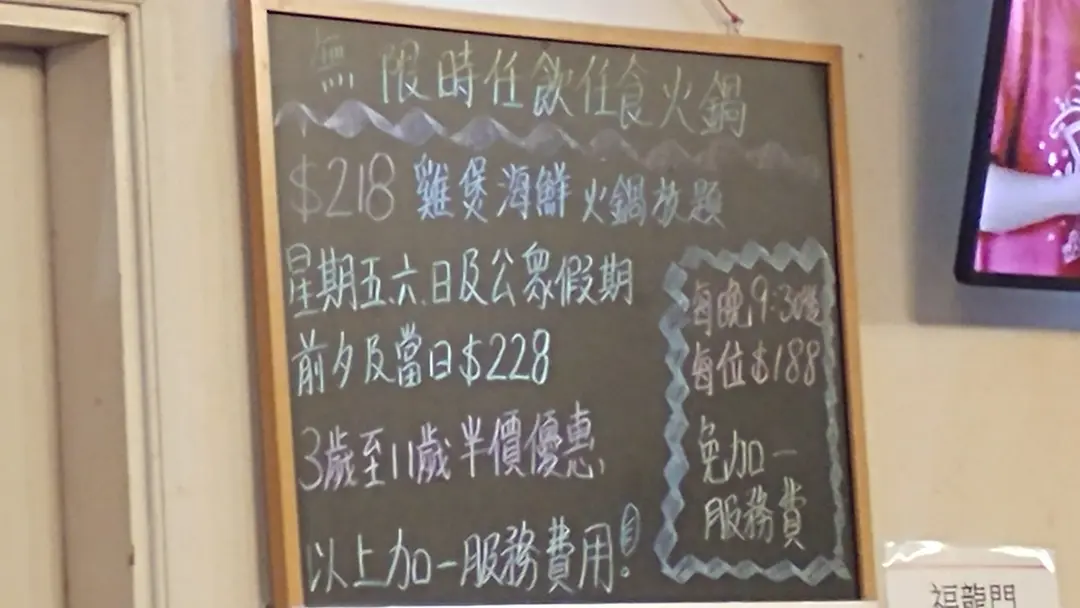 無限時任飲任食火鍋
$218 雞煲海鮮火鍋放題
星期五.六.日及公眾假期
前夕及當日$228
3歲至11歲半價優惠
以上加一服務費用!
每晚9:30後
每位$188
免加一
服務費
福龍門